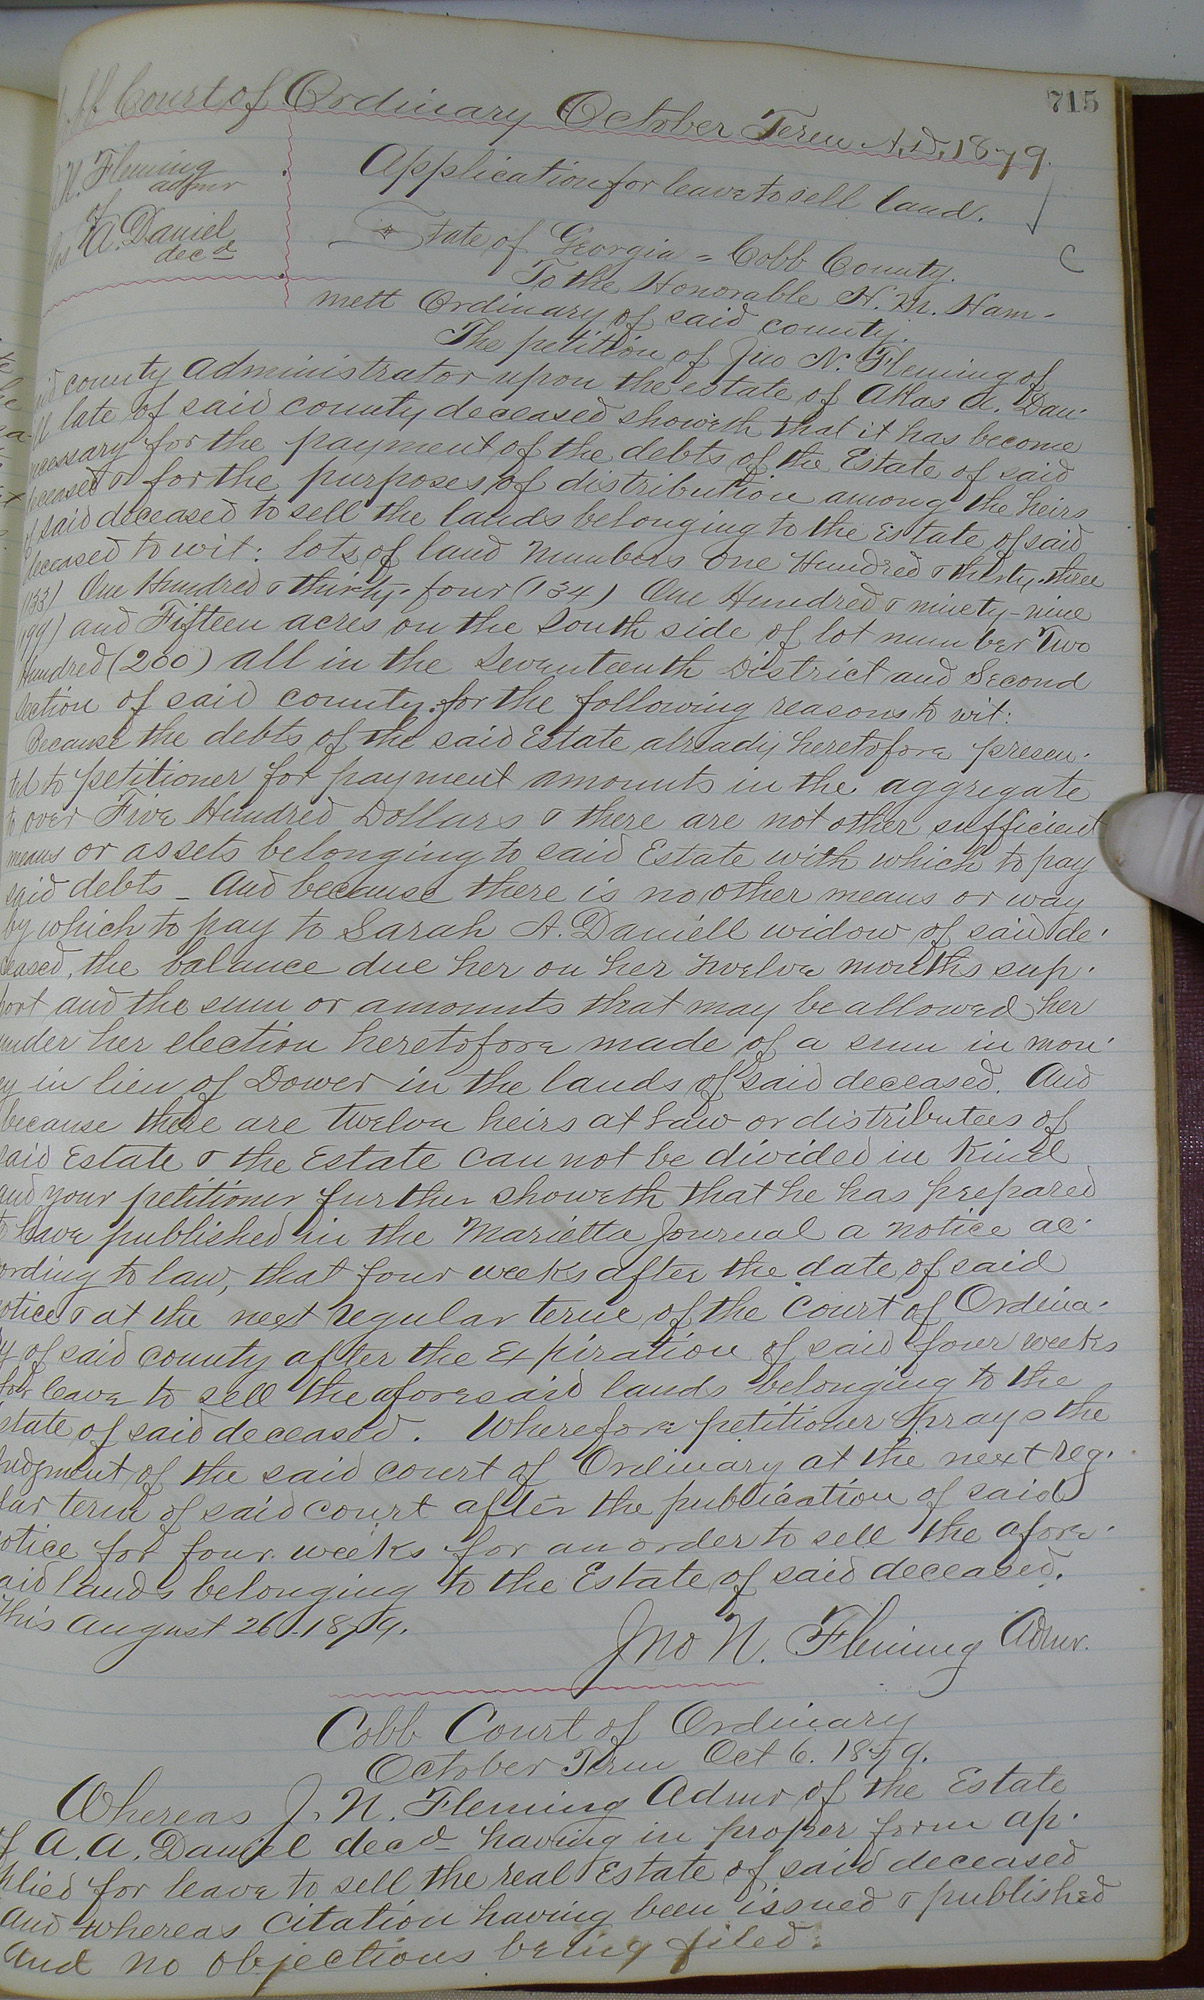 715
Court of Ordinary October Term A.D. 1879.
N. Fleming
admr
of
A. Daniel
decd
Application for leave to sell land.
State of Georgia = Cobb County.
To the Honorable H. M. Ham-
mett Ordinary of said county.
The petition of Jno N. Fleming of
said county administrator upon the estate of Akas A. Dan-
ll late of said county deceased showeth that it has become
necessary for the payment of the debts of the Estate of said
deceased & for the purposes of distribution among the heirs
of said deceased to sell the lands belonging to the Estate of said
deceased to wit: lots of land numbers One Hundred & thirty-three
(133) One Hundred & thirty-four (134) One Hundred & ninety-nine
199) and Fifteen acres on the South side of lot number Two
Hundred (200) all in the Seventeenth District and Second
Section of said county. for the following reasons to wit:
Because the debts of the said Estate already heretofore presen-
ted to petitioner for payment amounts in the aggregate
to over Five Hundred Dollars & there are not other sufficient
means or assets belonging to said Estate with which to pay
said debts - And because there is no other means or way
by which to pay to Sarah A. Daniell widow of said de-
ceased, the balance due her on her twelve months sup-
port and the sum or amounts that may be allowed her
under her election heretofore made of a sum in mon-
ey in lieu of Dower in the lands of said deceased. And
because there are twelve heirs at Law or distributees of
said Estate & the Estate can not be divided in Kind
and your petitioner further showeth that he has prepared
to have published in the Marietta Journal a notice ac-
ording to law, that four weeks after the date of said
notice & at the next regular term of the Court of Ordina-
ry of said county after the expiration of said four weeks
for leave to sell the aforesaid lands belonging to the
state of said deceased. Wherefore petitioner prays the
Judgment of the said court of Ordinary at the next reg-
lar term of said court after the publication of said
notice for four weeks for an order to sell the afore-
aid lands belonging to the Estate of said deceased.
This August 26. 1879.
Jno N. Fleming Admr.
Cobb Court of Ordinary
October Term Oct 6. 1879.
Whereas J. N. Fleming Admr of the Estate
of A. A. Daniel decd having in proper from ap-
plied for leave to sell the real Estate of said deceased
And whereas citation having been issued & published
And no objections being filed.